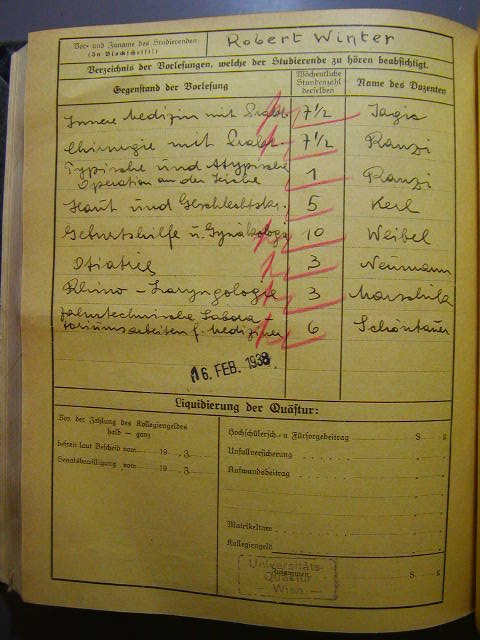 Vor- und Zuname des Studierenden: Robert Winter
(In Blockschrift!)
Verzeichnis der Vorlesungen, welche der Studierende zu hören beabsichtigt.
Gegenstand der Vorlesung Wöchentliche Stundenzahl derselben Name des Dozenten
Innere Medizin mit 7½ Jagic
Chirurgie mit 7½ Ranzi
Typische und Atypische
Operation an der Leiche 1 Ranzi
Haut und Geschlechtskr. 5 Kerl
Geburtshilfe u. Gynäkologie 10 Weibel
Otiatrie 3 Neumann
Rhino-Laryngologie 3 Marschik
Zahntechnische Labora-
toriumsarbeiten f. Mediziner 6 Schöntauer
16. FEB. 1938.
Liquidierung der Quästur:
Vor der Zahlung des Kollegiengeldes
halb — ganz
befreit laut Bescheid vom 19 , Z.
Senatsbewilligung vom 19 , Z.
Hochschülersch.- u Fürsorgebeitrag S g
Unfallversicherung
Aufwandsbeitrag
Matrikeltaxe
Kollegiengeld
Zusammen S g
Universitäts-
Quästur
Wien